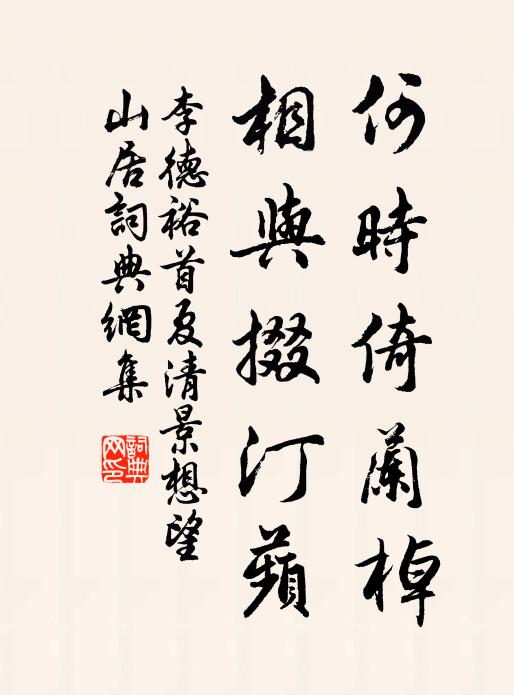 何時倚蘭棹
相與掇汀蘋
李德裕首夏清景想望
山居詞典網集
詞典
网印